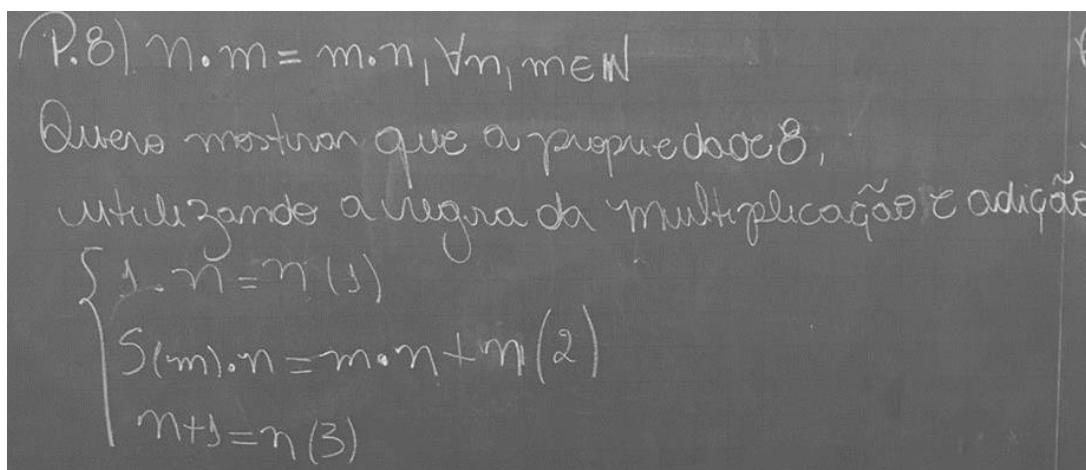 P.8) n·m = m·n, ∀n, m ∈ ℕ
Quero mostrar que a propriedade 8,
utilizando a regra da multiplicação e adição
1·n = n (1)
S(m)·n = m·n + n (2)
n+1 = n (3)